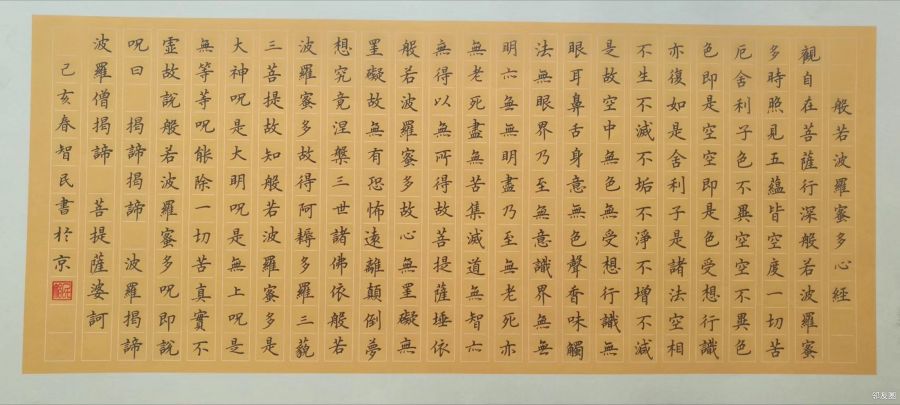 般若波羅蜜多心經
觀自在菩薩行深般若波羅蜜
多時照見五蘊皆空度一切苦
厄舍利子色不異空空不異色
色即是空空即是色受想行識
亦復如是舍利子是諸法空相
不生不滅不垢不淨不增不減
是故空中無色無受想行識無
眼耳鼻舌身意無色聲香味觸
法無眼界乃至無意識界無無
明亦無無明盡乃至無老死亦
無老死盡無苦集滅道無智亦
無得以無所得故菩提薩埵依
般若波羅蜜多故心無罣礙無
罣礙故無有恐怖遠離顛倒夢
想究竟涅槃三世諸佛依般若
波羅蜜多故得阿耨多羅三藐
三菩提故知般若波羅蜜多是
大神呪是大明呪是無上呪是
無等等呪能除一切苦真實不
虛故說般若波羅蜜多呪即說
呪曰 揭諦揭諦 波羅揭諦
波羅僧揭諦 菩提薩婆訶
己亥春智民書於京
邻友圈